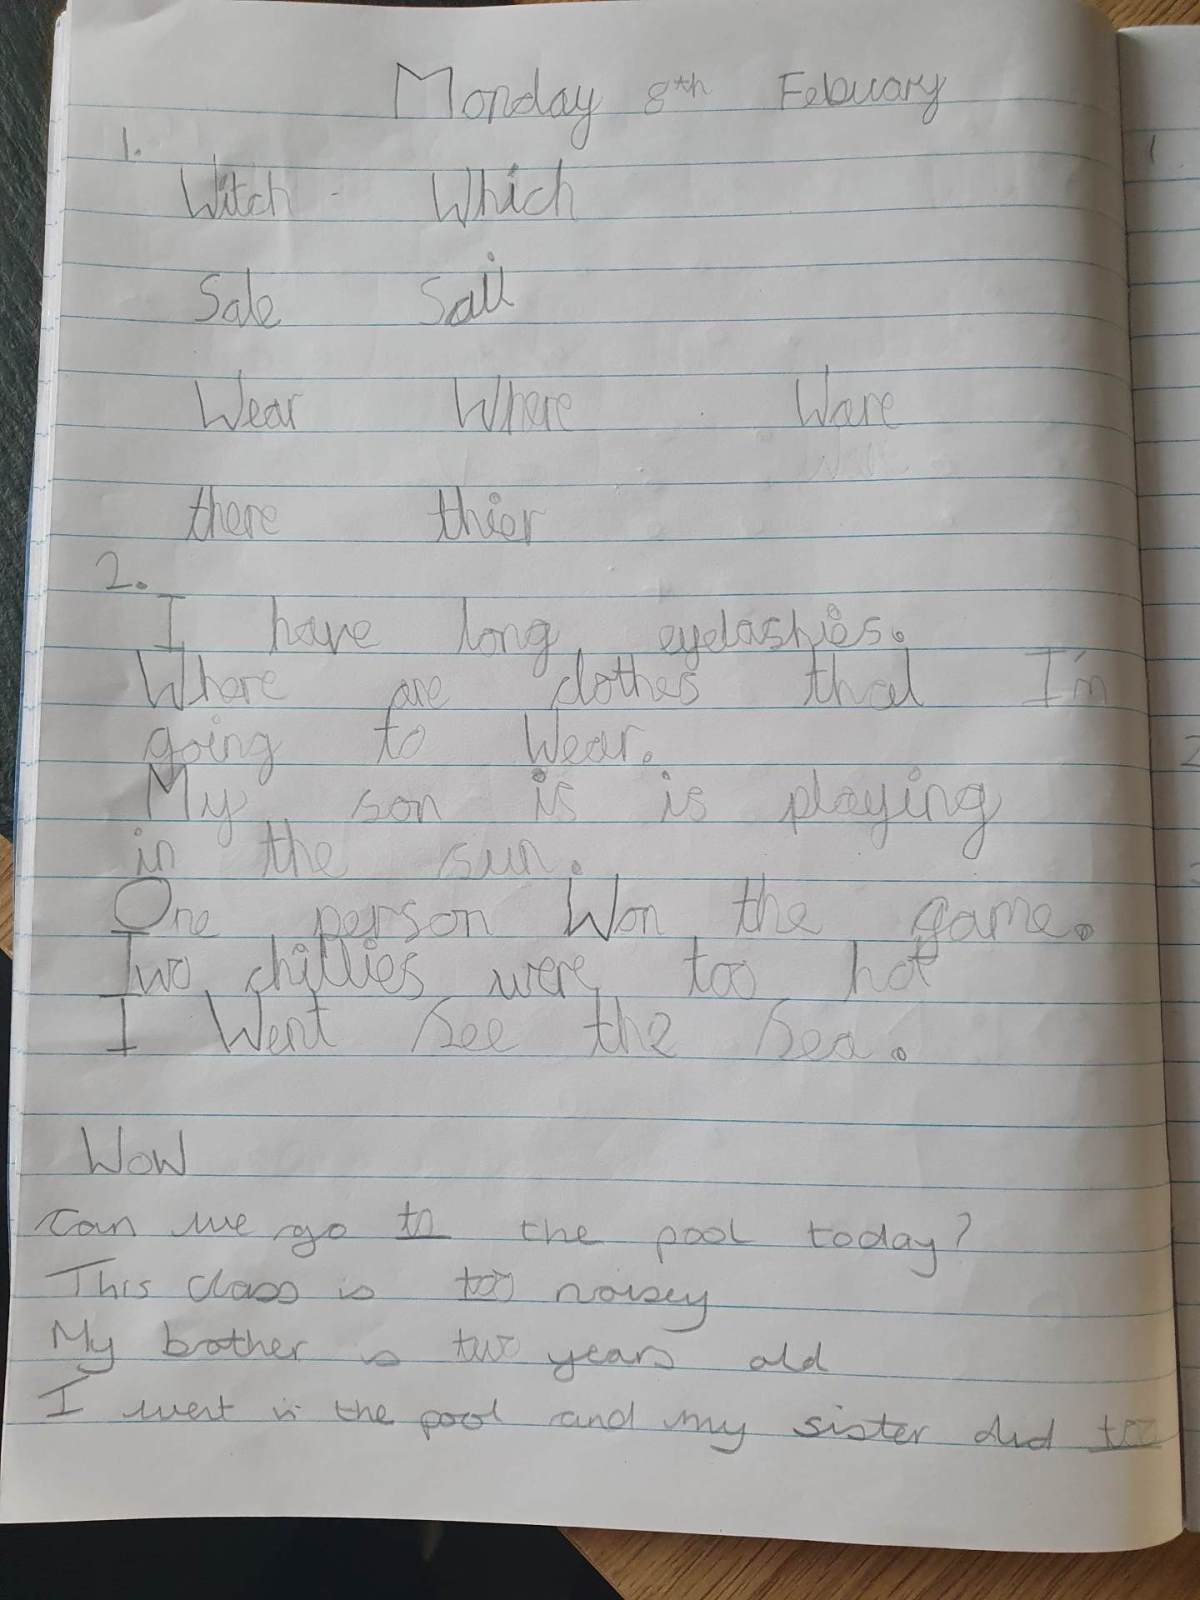 Monday 8th Febuary
1.
Witch Which
Sale Sail
Wear Where Ware
there thier
2.
I have long eyelashies.
Where are clothes that I'm
going to wear.
My son is is playing
in the sun.
One person Won the game.
Two chillies were too hot
I Went see the sea.
Wow
Can we go to the pool today?
This class is too noisey
My brother is two years old
I went in the pool and my sister did too
1
2